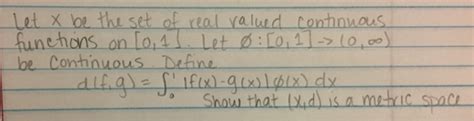 Let X be the set of real valued continuous
functions on [0,1]. Let ø:[0,1]→(0,∞)
be continuous Define
d(f,g)=∫₀¹|f(x)-g(x)|ø(x)dx
Show that (X,d) is a metric space